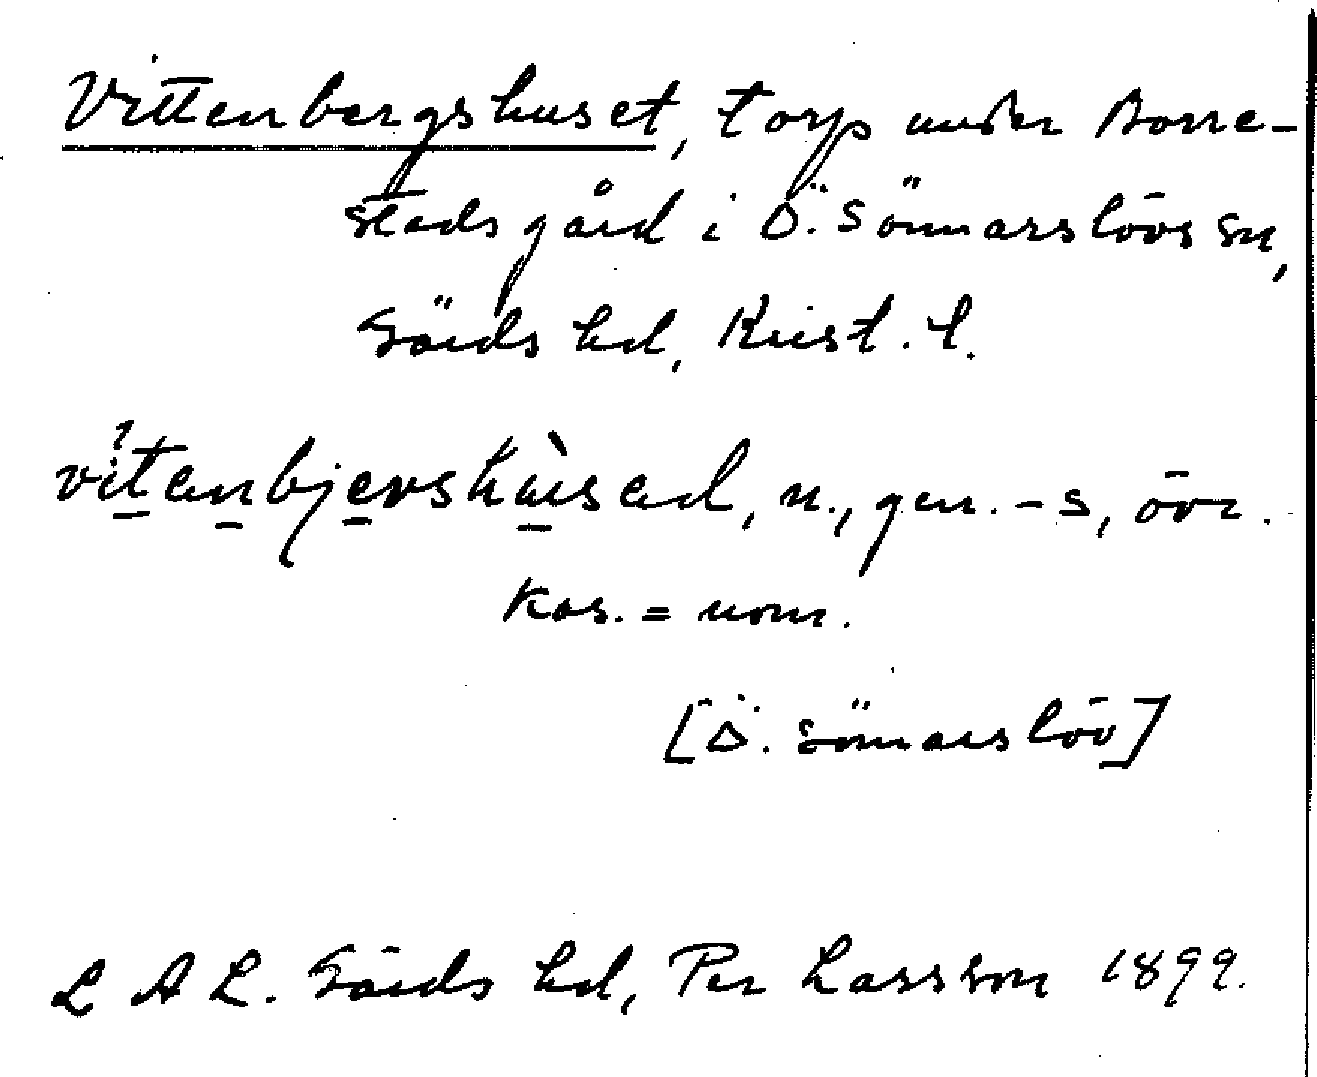 Vittenbergshuset, torp under Borre-
stads gård i Ö. Sönnarslövs sn,
Gärds hd, Krist. l.
vítenbjershùsed, n., gen. -s, övr.
kas. = nom.
[Ö. Sönnarslöv]
L A L. Gärds hd, Per Larsson 1899.